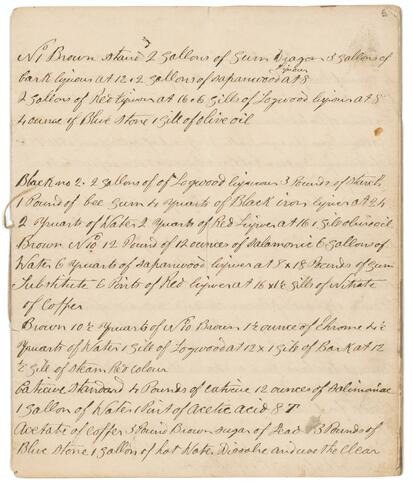 No Brown stand 2 gallons of Gum Dragon 3 gallons of
bark liquour at 12 + 2 gallons of sapanwood liquour at 8
2 gallons of Red liquour at 16 + 6 gills of Logwood liquour at 8
4 ounce of Blue Stone 1 gill of olive oil
Black no 2. 2 gallons of of Logwood liquour 3 Pounds of Starch
1 Pound of bee Gum 4 quarts of Black iron liquer at 24
2 quarts of Water 2 quarts of Red Liquer at 16 1 gill olive oil
Brown No 12 Pound of 12 ounces of Salamonic 6 gallons of
Water 6 quarts of Sapanwood liquer at 8 + 18 Pounds of Gum
Substitute 6 Parts of Red liquer at 16 + 1½ gills of Nitrate
of Copper
Brown 10½ quarts of No Brown 1½ ounce of Chrome 4½
quarts of Water 1 gill of Logwood at 12 + 1 gill of Bark at 12
½ gill of steam Red colour
Caticue Standard 4 Pounds of caticue 12 ounces of Salimoniac
1 gallon of Water 1 Pint of Acetic acid 8 T
Acetate of Copper 3 Pound Brown sugar of Lead 3 Pounds of
Blue Stone 1 gallon of hot Water Dissolve and use the Clear